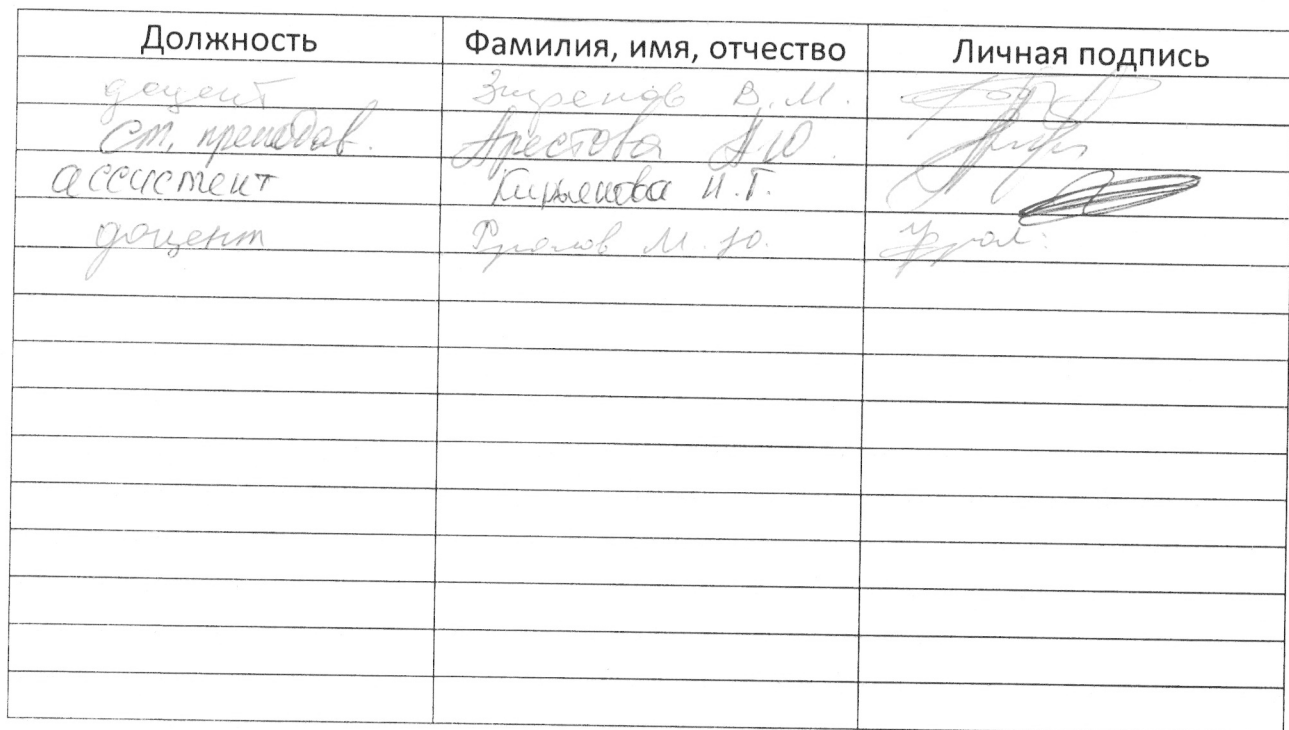 Должность Фамилия, имя, отчество Личная подпись
доцент В.М.
ст. преподав. Арестова А.Ю.
ассистент Кирьянова И.Г.
доцент Фролов М.Ю.